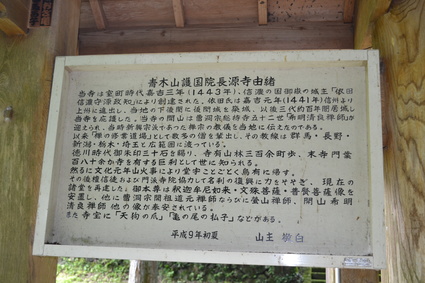 青木山護国院長源寺由緒
当寺は室町時代嘉吉三年(1443年)、信濃の国御嶽の城主「依田
信濃守淳政知」により創建された。依田氏は嘉吉元年(1441年)信州より
上州に進出し、当地の下後閑に後閑城を築城、以後三代約百年間居城し
当寺を庇護した。当寺の開山は曹洞宗総持寺五十二世「希明清良禅師」が
迎えられ、当時新興宗派であった禅宗の教儀を当地に伝えたのである。
以来「禅の修業道場」として数多の僧を輩出し、その教線は群馬・長野・
新潟・栃木・埼玉と広範囲に渡っている。
徳川時代御朱印三十石を賜り、寺有山林三百余町歩、末寺門葉
百八十余か寺を有する巨刹として世に知られる。
然るに文化元年山火事により堂宇ことごとく烏有に帰す。
その後檀信徒および門派寺院協力して者利の復興に力をそそぎ、現在の
諸堂を再建した。御本尊は釈迦牟尼如来・文殊菩薩・普賢菩薩像を
安置し、他に曹洞宗開祖道元禅師ならびに瑩山禅師、開山希明
清良禅師他の像が奉安されている。
また寺宝に「天狗の爪」「亀の尾の払子」などがある。
平成9年初夏 山主 白